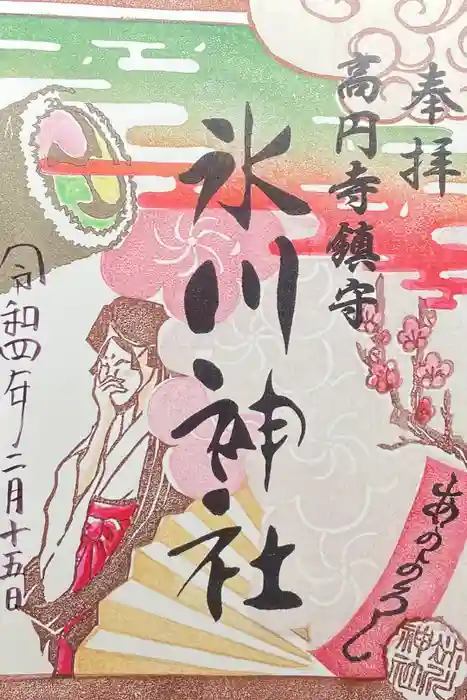 奉拝
高円寺鎮守
氷川神社
令和四年二月十五日
氷川
神社